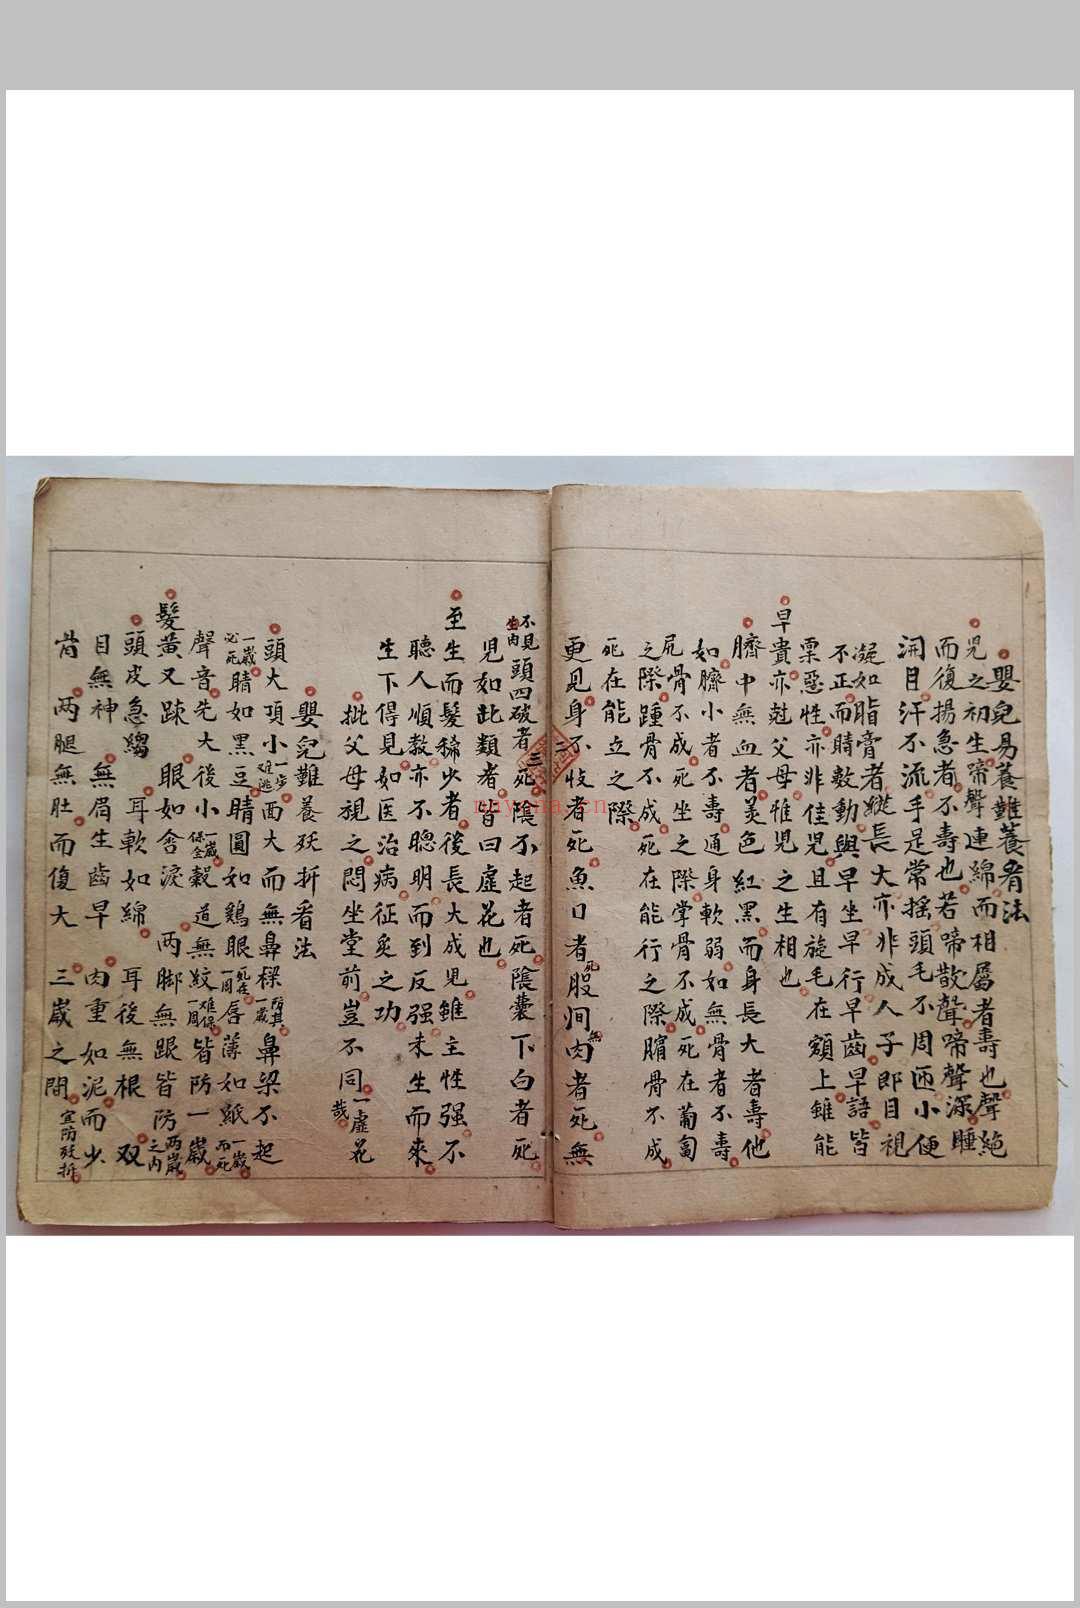 嬰兒易養難養看法
兒之初生啼聲連綿而相屬者壽也聲絕
而復揚急者不壽也若啼散聲啼聲深睡
開目汗不流手足常搖頭毛不周匝小便
凝如脂膏者縱長大亦非成人子即目視
不正而睛數動與早坐早行早齒早語皆
栗惡性亦非佳兒且有旋毛在額上雖能
早貴亦尅父母惟兒之生相也
臍中無血者美色紅黑而身長大者壽他
如臍小者不壽通身軟弱如無骨者不壽
尻骨不成死坐之際掌骨不成死在葡匐
之際踵骨不成死在能行之際臏骨不成
死在能立之際
更見身不收者死魚口者死股间無肉者死無
不見生肉頭四破者死陰不起者死陰囊下白者死
兒如此類者皆曰虛花也
至生而髮稀少者後長大成兒雖主性强不
聽人順教亦不聰明而到反强未生而來
生下得見如医治病征炙之功
批父母視之悶坐堂前豈不同一虛花哉
嬰兒難養殀折看法
頭大項小一步难逃面大而無鼻樑一歲防其鼻梁不起
一歲必死睛如黑豆睛圓如鷄眼死在一周唇薄如紙一歲而死
聲音先大後小一歲保全穀道無紋一周难保皆防一歲
髮黃又踈 眼如含淚 两脚無跟皆防两歲之内
頭皮急縐 耳軟如綿 耳後無根 双
目無神 無眉生齒早 肉重如泥而少
骨 两腿無肚而復大 三歲之間宜防殀折
二三